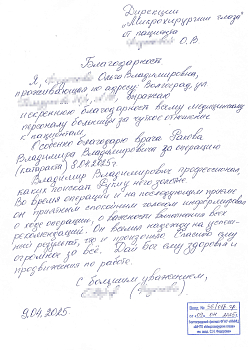 Дирекции
«Микрохирургии глаза»
от пациента
О.В.
Благодарность
Я, Ольга Владимировна,
проживающая по адресу: Волгоград, ул
выражаю
искреннюю благодарность всему медицинскому
персоналу больницы за чуткое отношение
к пациентам.
Особенно благодарю врача
Владимира Владимировича за операцию
(катаракта) 8.04.2025г.
Владимир Владимирович профессионал
каких поискать. Руки у него золотые.
Во время операции и на последующем приеме
он приятным спокойным голосом информировал
о ходе операции, о важности выполнения всех
рекомендаций. Он вселил надежду на успеш-
ный результат, что и произошло. Спасибо ему
огромное за всё. Дай Бог ему здоровья и
продвижения по работе.
С большим уважением,
9.04.2025.